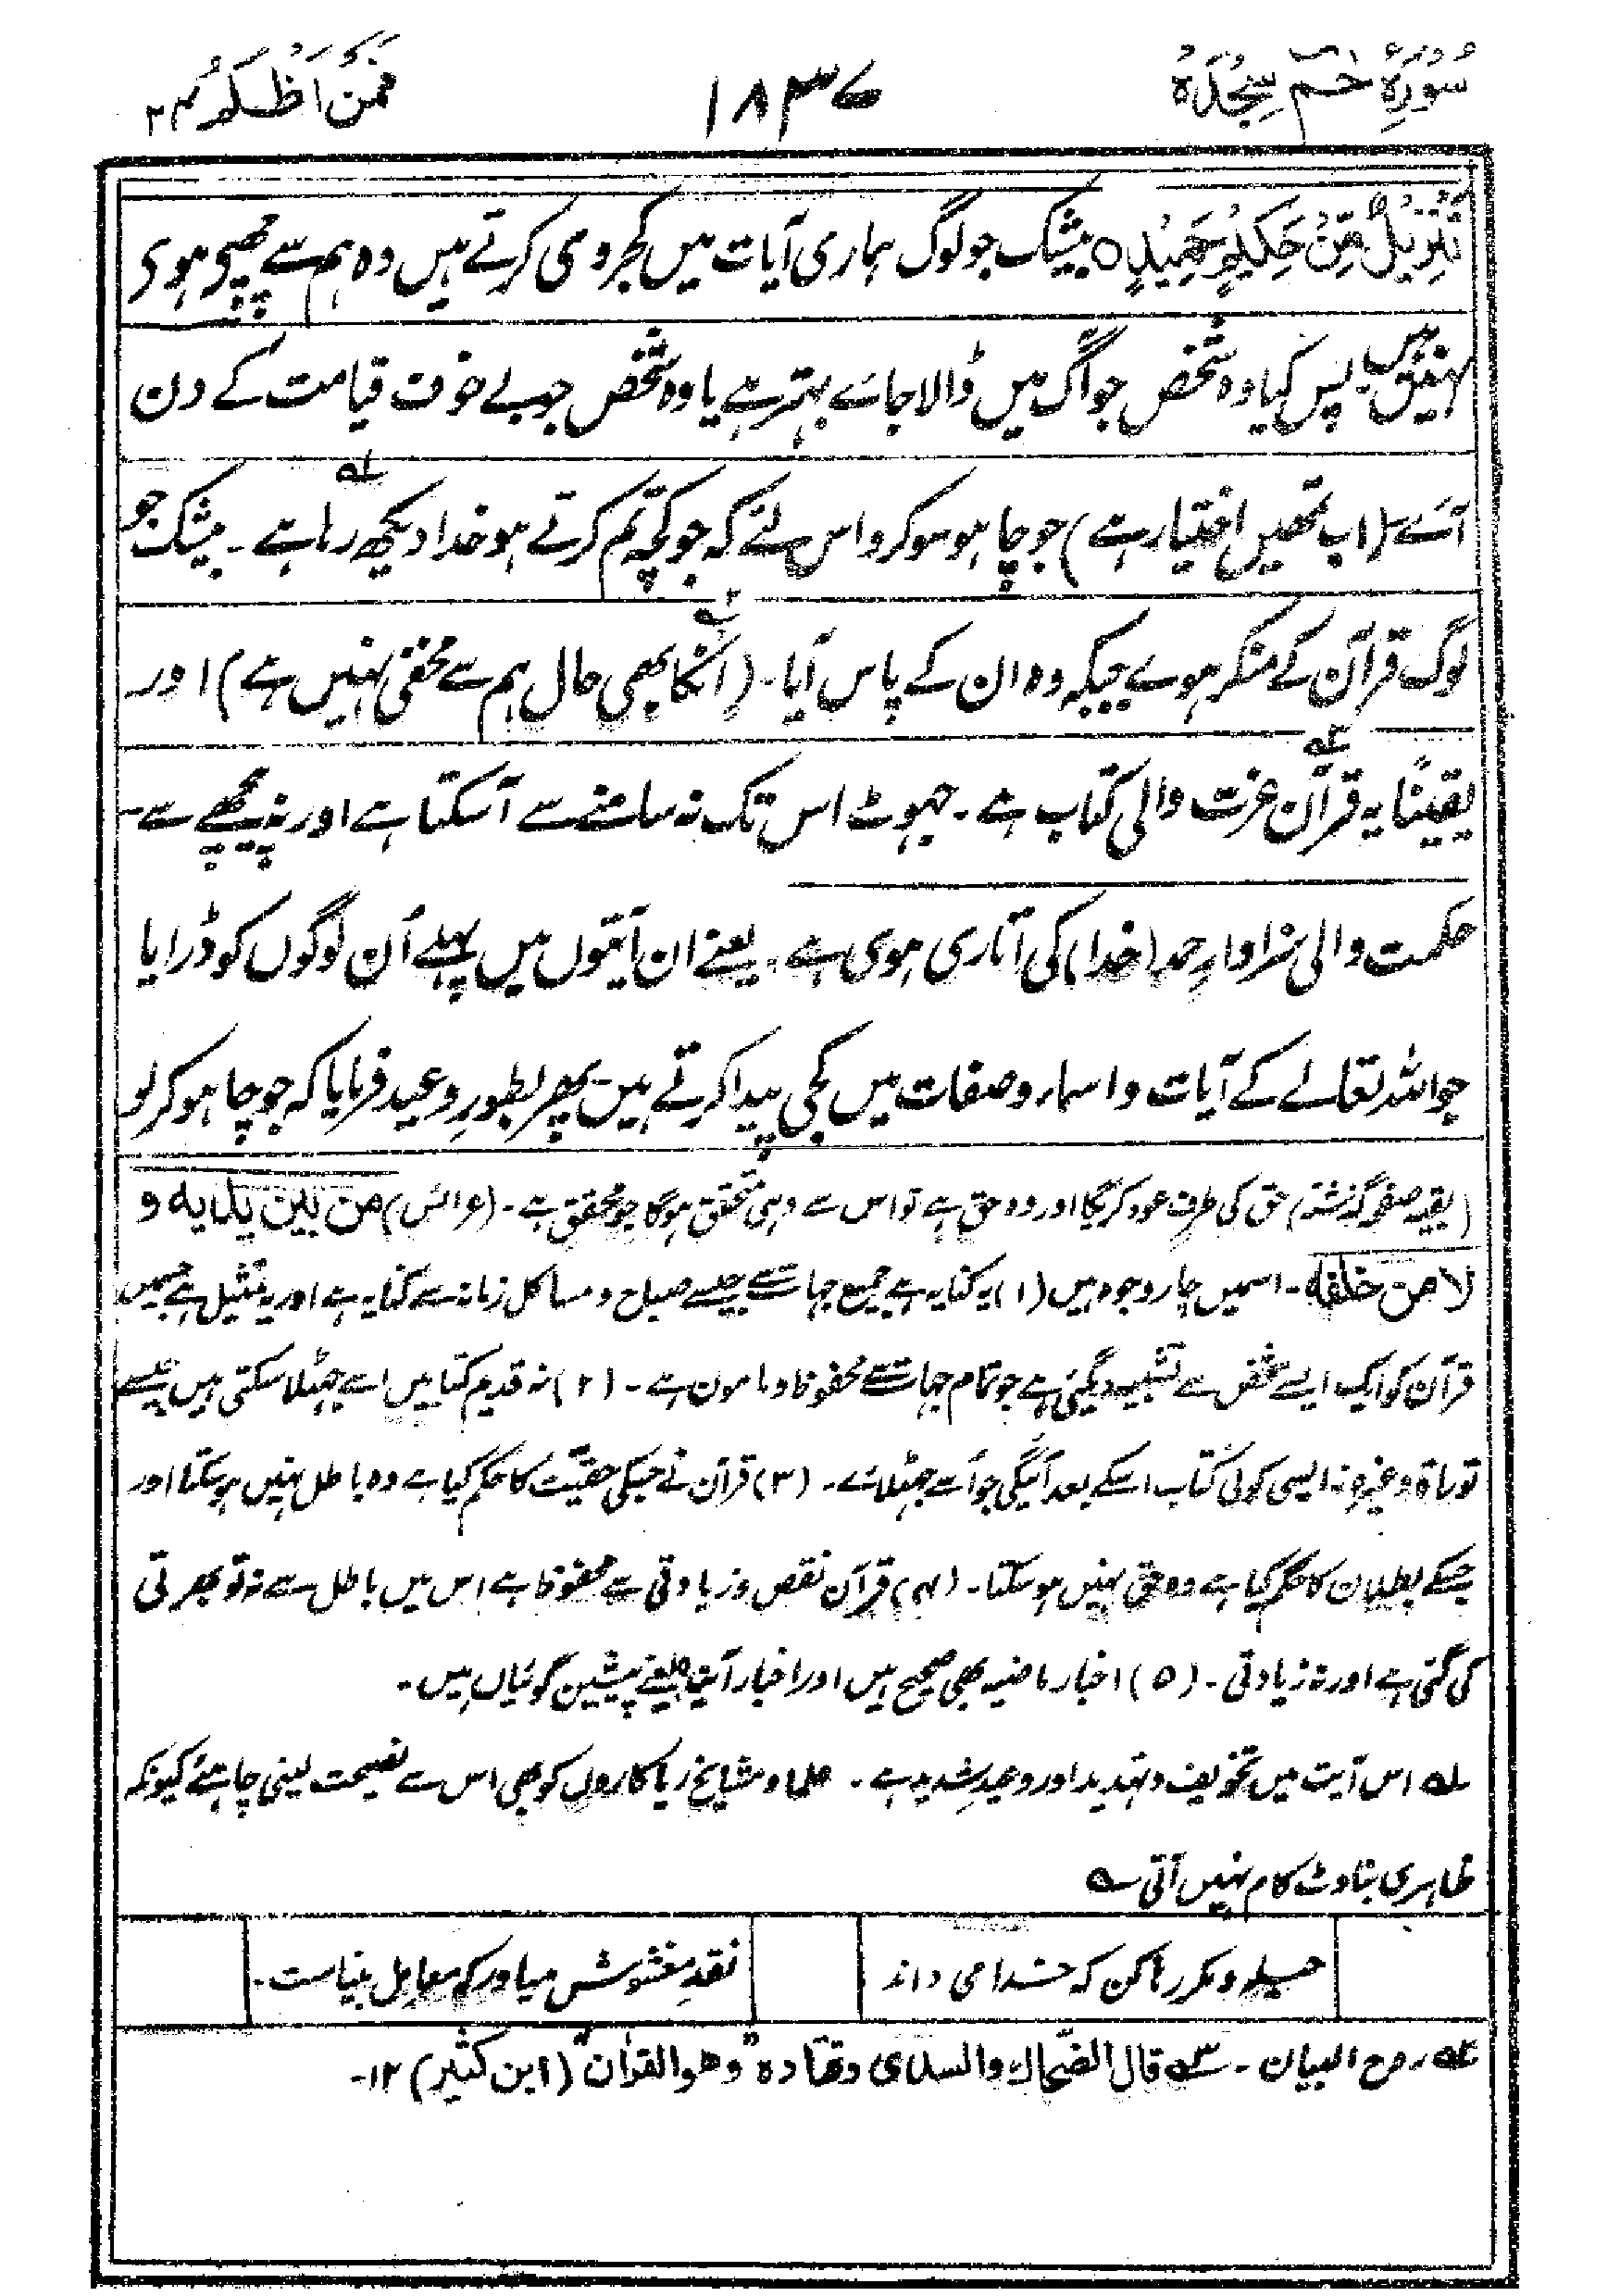 سُوْرَۃُ حٰمٓ سِجْدَہْ ۱۸۳۷ فَمَنْ اَظْلَمُ ۲۴
تَنْزِیْلٌ مِّنْ حَکِیْمٍ حَمِیْدٍ ○ بیشک جو لوگ ہماری آیات میں کجروی کرتے ہیں وہ ہم سے چھپی ہوی
نہیں ہیں پس کیا وہ شخص جو آگ میں ڈالا جائے بہتر ہے یا وہ شخص جو بے خوف قیامت کے دن
آئے (اب تمھیں اختیار ہے) جو چاہو سو کرو اس لئے کہ جو کچھ تم کرتے ہو خدا دیکھ رہا ہے ۱ـہ ۔ بیشک جو
لوگ قرآن کے منکر ہوے جبکہ وہ ان کے پاس آیا ۔ (اُنکا ۲ـہ بھی حال ہم سے مخفی نہیں ہے) اور
یقینًا یہ قرآن ۳ـہ عزت والی کتاب ہے ۔ جہوٹ اس تک نہ سامنے سے آسکتا ہے اور نہ پیچھے سے ۔
حکمت والی سزاوارِ حمد (خدا) کی اُتاری ہوی ہے ۔ یعنے ان آیتوں میں پہلے اُن لوگوں کو ڈرایا
جو اللہ تعالے کے آیات و اسماء و صفات میں کجی پیدا کرتے ہیں ۔ پھر بطورِ وعید فرمایا کہ جو چاہو کرلو
(بقیہ صفحہ گذشتہ) حق کی طرف عود کریگا اور وہ حق ہے تو اس سے وہی متحقق ہوگا جو محقق ہے ۔ (عرائس) من بین یدیہ و
لا من خلفہ ۔ اسمیں چار وجوہ ہیں (۱) یہ کنایہ ہے جمیع جہات سے جیسے صباح و مسا کل زمانہ سے کنایہ ہے اور یہ تمثیل ہے جسمیں
قرآن کو ایک ایسے شخص سے تشبیہ دیگئی ہے جو تمام جہات سے محفوظ و مامون ہے ۔ (۲) نہ قدیم کتابیں اسے جہٹلا سکتی ہیں جیسے
توراۃ وغیرہ نہ ایسی کوئی کتاب اسکے بعد آئیگی جو اُسے جہٹلائے ۔ (۳) قرآن نے جسکی حقیّت کا حکم کیا ہے وہ باطل نہیں ہوسکتا اور
جسکے بطلان کا حکم کیا ہے وہ حق نہیں ہوسکتا ۔ (۴) قرآن نقص و زیادتی سے محفوظ ہے اس میں باطل سے نہ تو بھرتی
کی گئی ہے اور نہ زیادتی ۔ (۵) اخبار ماضیہ بھی صحیح ہیں اور اخبار آتیہ یعنے پیشین گوئیاں ہیں ۔
۱ـہ اس آیت میں تخویف و تہدید اور وعید شدید ہے ۔ علماء و مشایخ ریاکاروں کو بھی اس سے نصیحت لینی چاہئے کیونکہ
ظاہری بناوٹ کام نہیں آتی ؎
حیلہ و مکر رہا کن کہ خدا می داند نقدِ مغشوش میاور کہ معاملِ بیناست ۔
۲ـہ روح البیان ۔ ۳ـہ قال الضحّاک والسدی وقتادہ "وھو القرٰان" (ابن کثیر) ۱۲ ۔